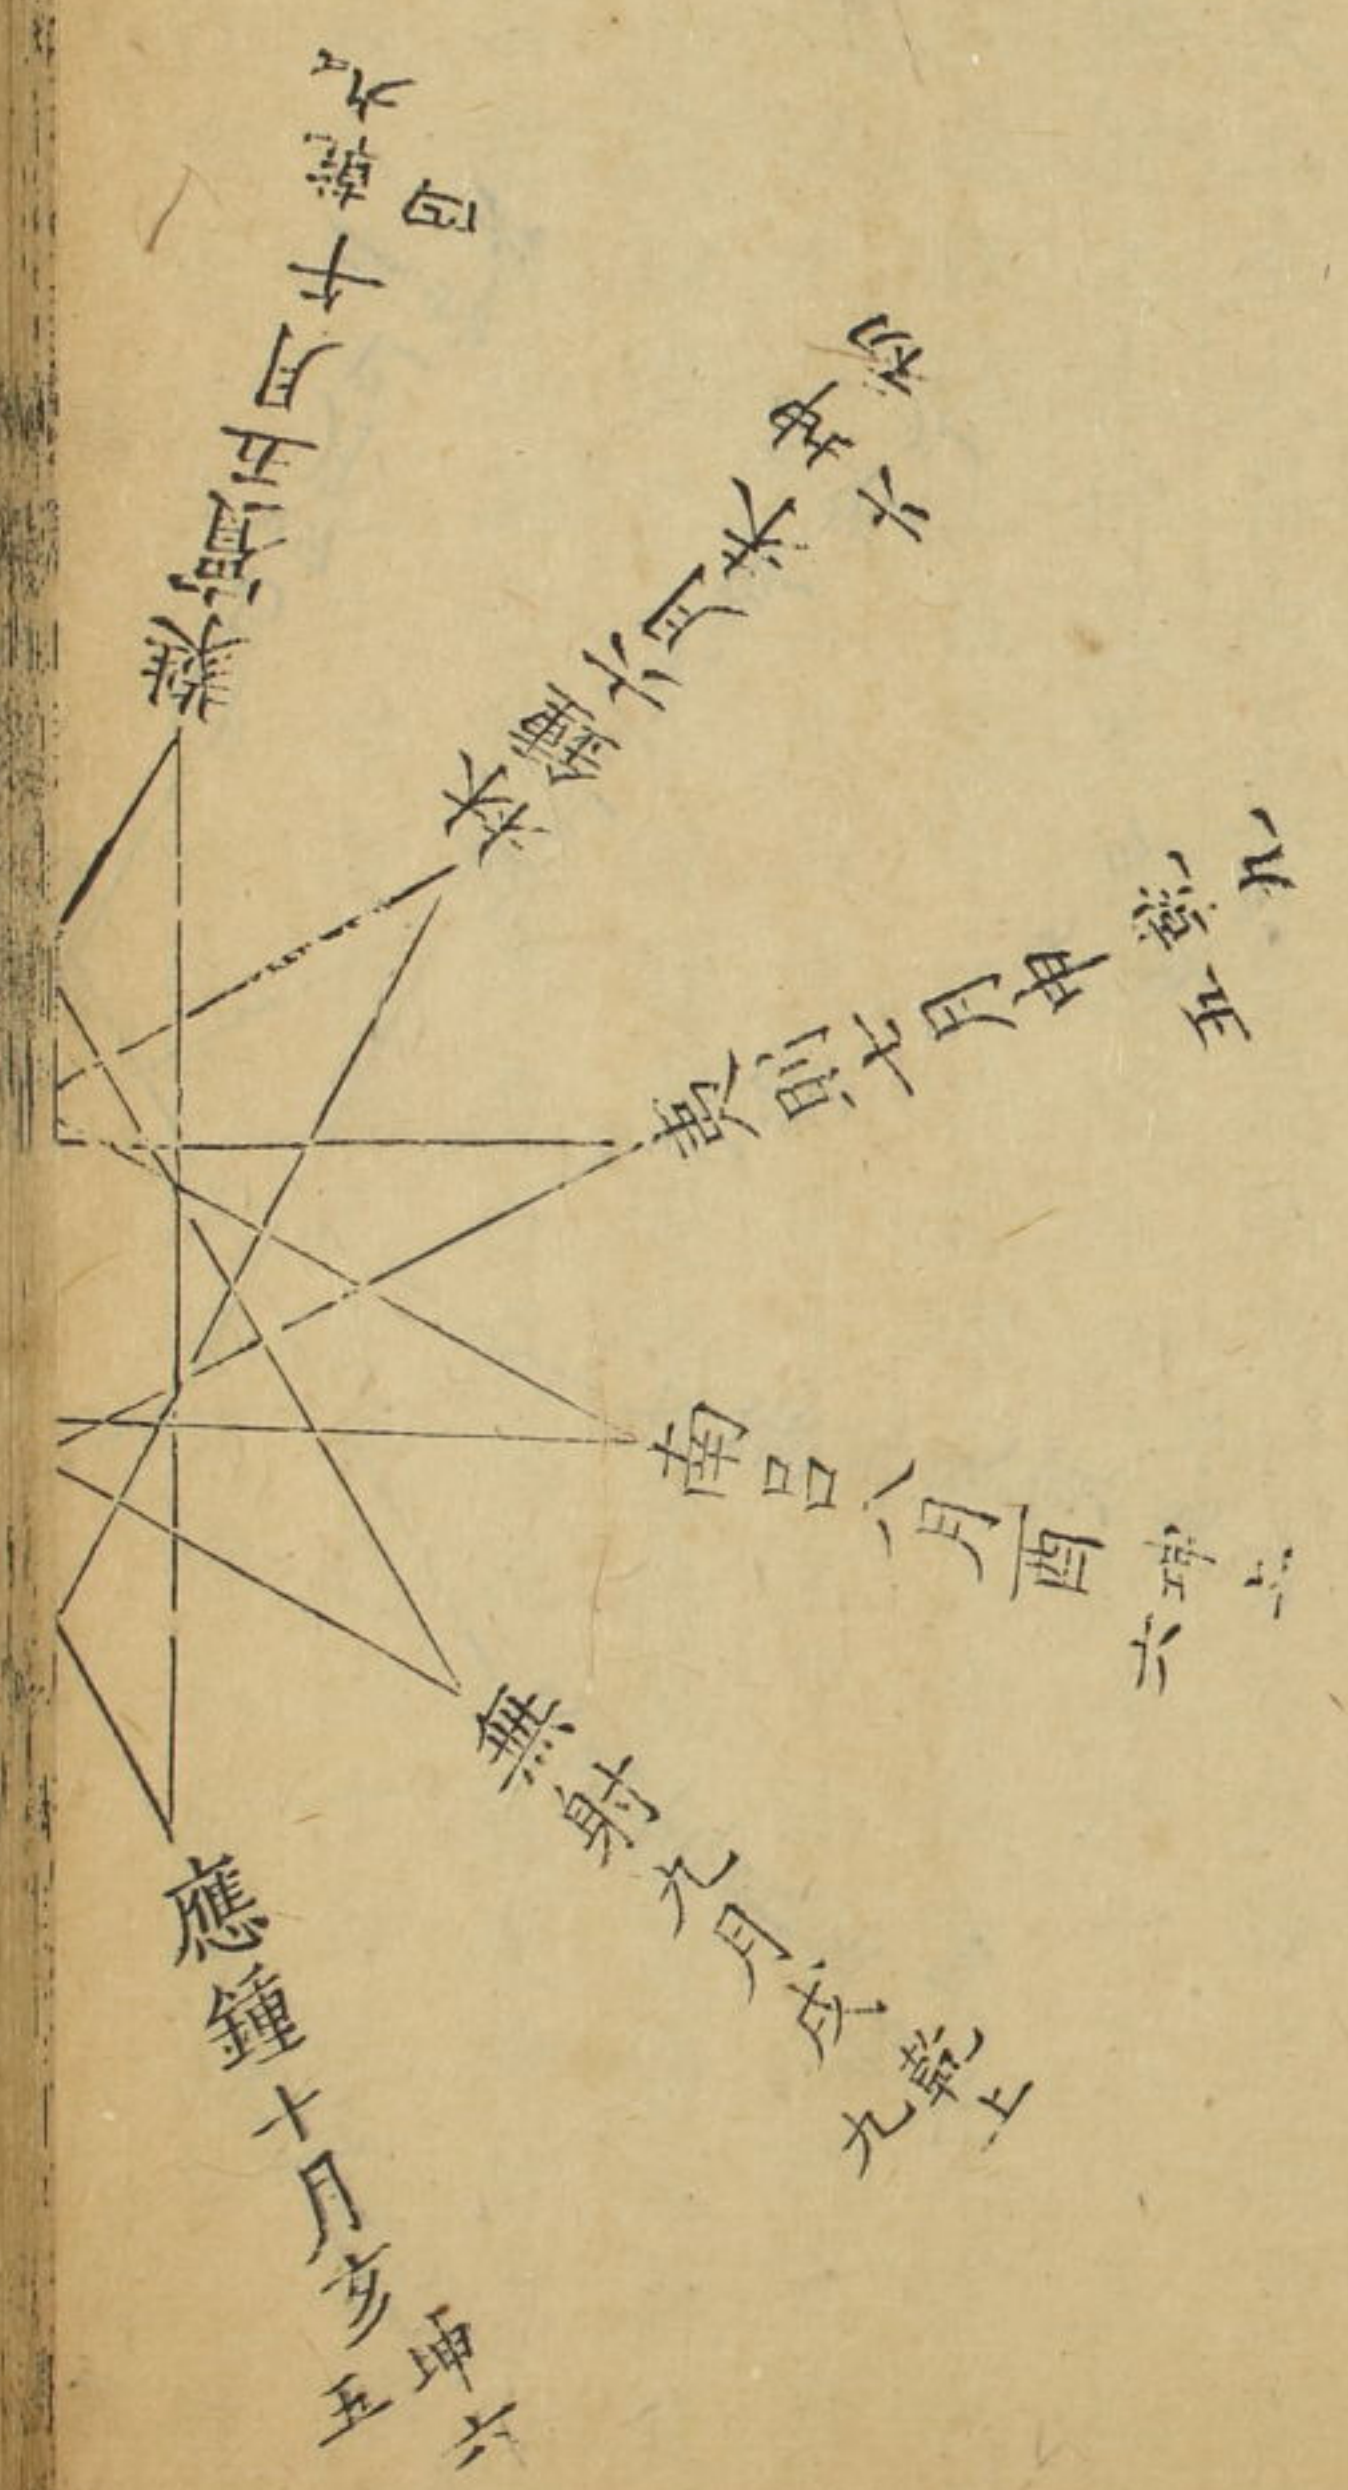 蕤賓五月午乾九四
林鐘六月未坤初六
夷則七月申乾九五
南吕八月酉坤上六
無射九月戌乾上九
應鍾十月亥坤六五